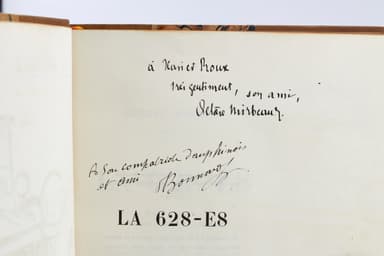 à Xavier Roux
très gentiment, son ami,
Octave Mirbeau
à son compatriote dauphinois
et ami Bonnard
LA 628-E8